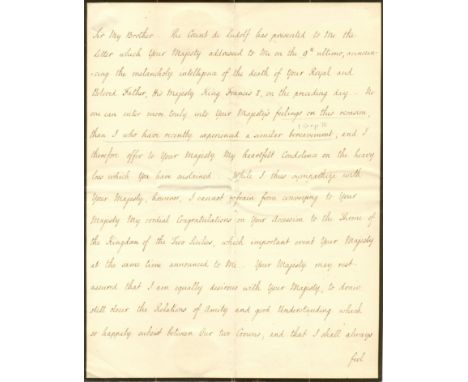 Sir My Brother. The Count de Ludolf has presented to Me the
Letter which Your Majesty addressed to Me on the 9th ultimo, announ-
-cing the melancholy intelligence of the death of Your Royal and
Beloved Father, His Majesty King Francis I, on the preceding day. No
one can enter more truly into Your Majesty's feelings on this occasion,
than I who have recently experienced a similar bereavement, and I
therefore offer to Your Majesty My heartfelt Condolence on the heavy
loss which You have sustained. While I thus sympathize with
Your Majesty, however, I cannot refrain from conveying to Your
Majesty My cordial Congratulations on Your Accession to the Throne of
the Kingdom of the Two Sicilies, which important event Your Majesty
at the same time announced to Me. Your Majesty may rest
assured that I am equally desirous with Your Majesty, to draw
still closer the Relations of Amity and good Understanding which
so happily subsist between Our two Crowns, and that I shall always
feel